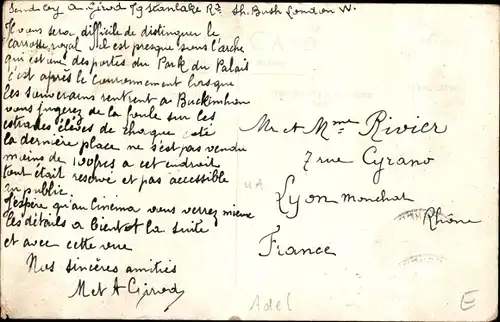 Send by A. Girod 79 Stanlake Rd Sh. Bush London W.
Il vous sera difficile de distinguer le
carrosse royal il est presque sous l'arche
qui est une des portes du Park du Palais
c'est après le Couronnement lorsque
les souverains rentrent a Buckinham
vous jugerez de la foule sur les
estrades élevés de chaque coté
la dernière place ne s'est pas vendu
moins de 100frcs a cet endroit
tout était reservé et pas accessible
au public
J'espère qu'au Cinema vous verrez mieux
les détails a bientot la suite
et avec cette vue
Nos sincères amitiés
M et A Girod
Mr et Mme Rivier
7 rue Cyrano
Lyon Monchat
Rhône
France
Adel
E